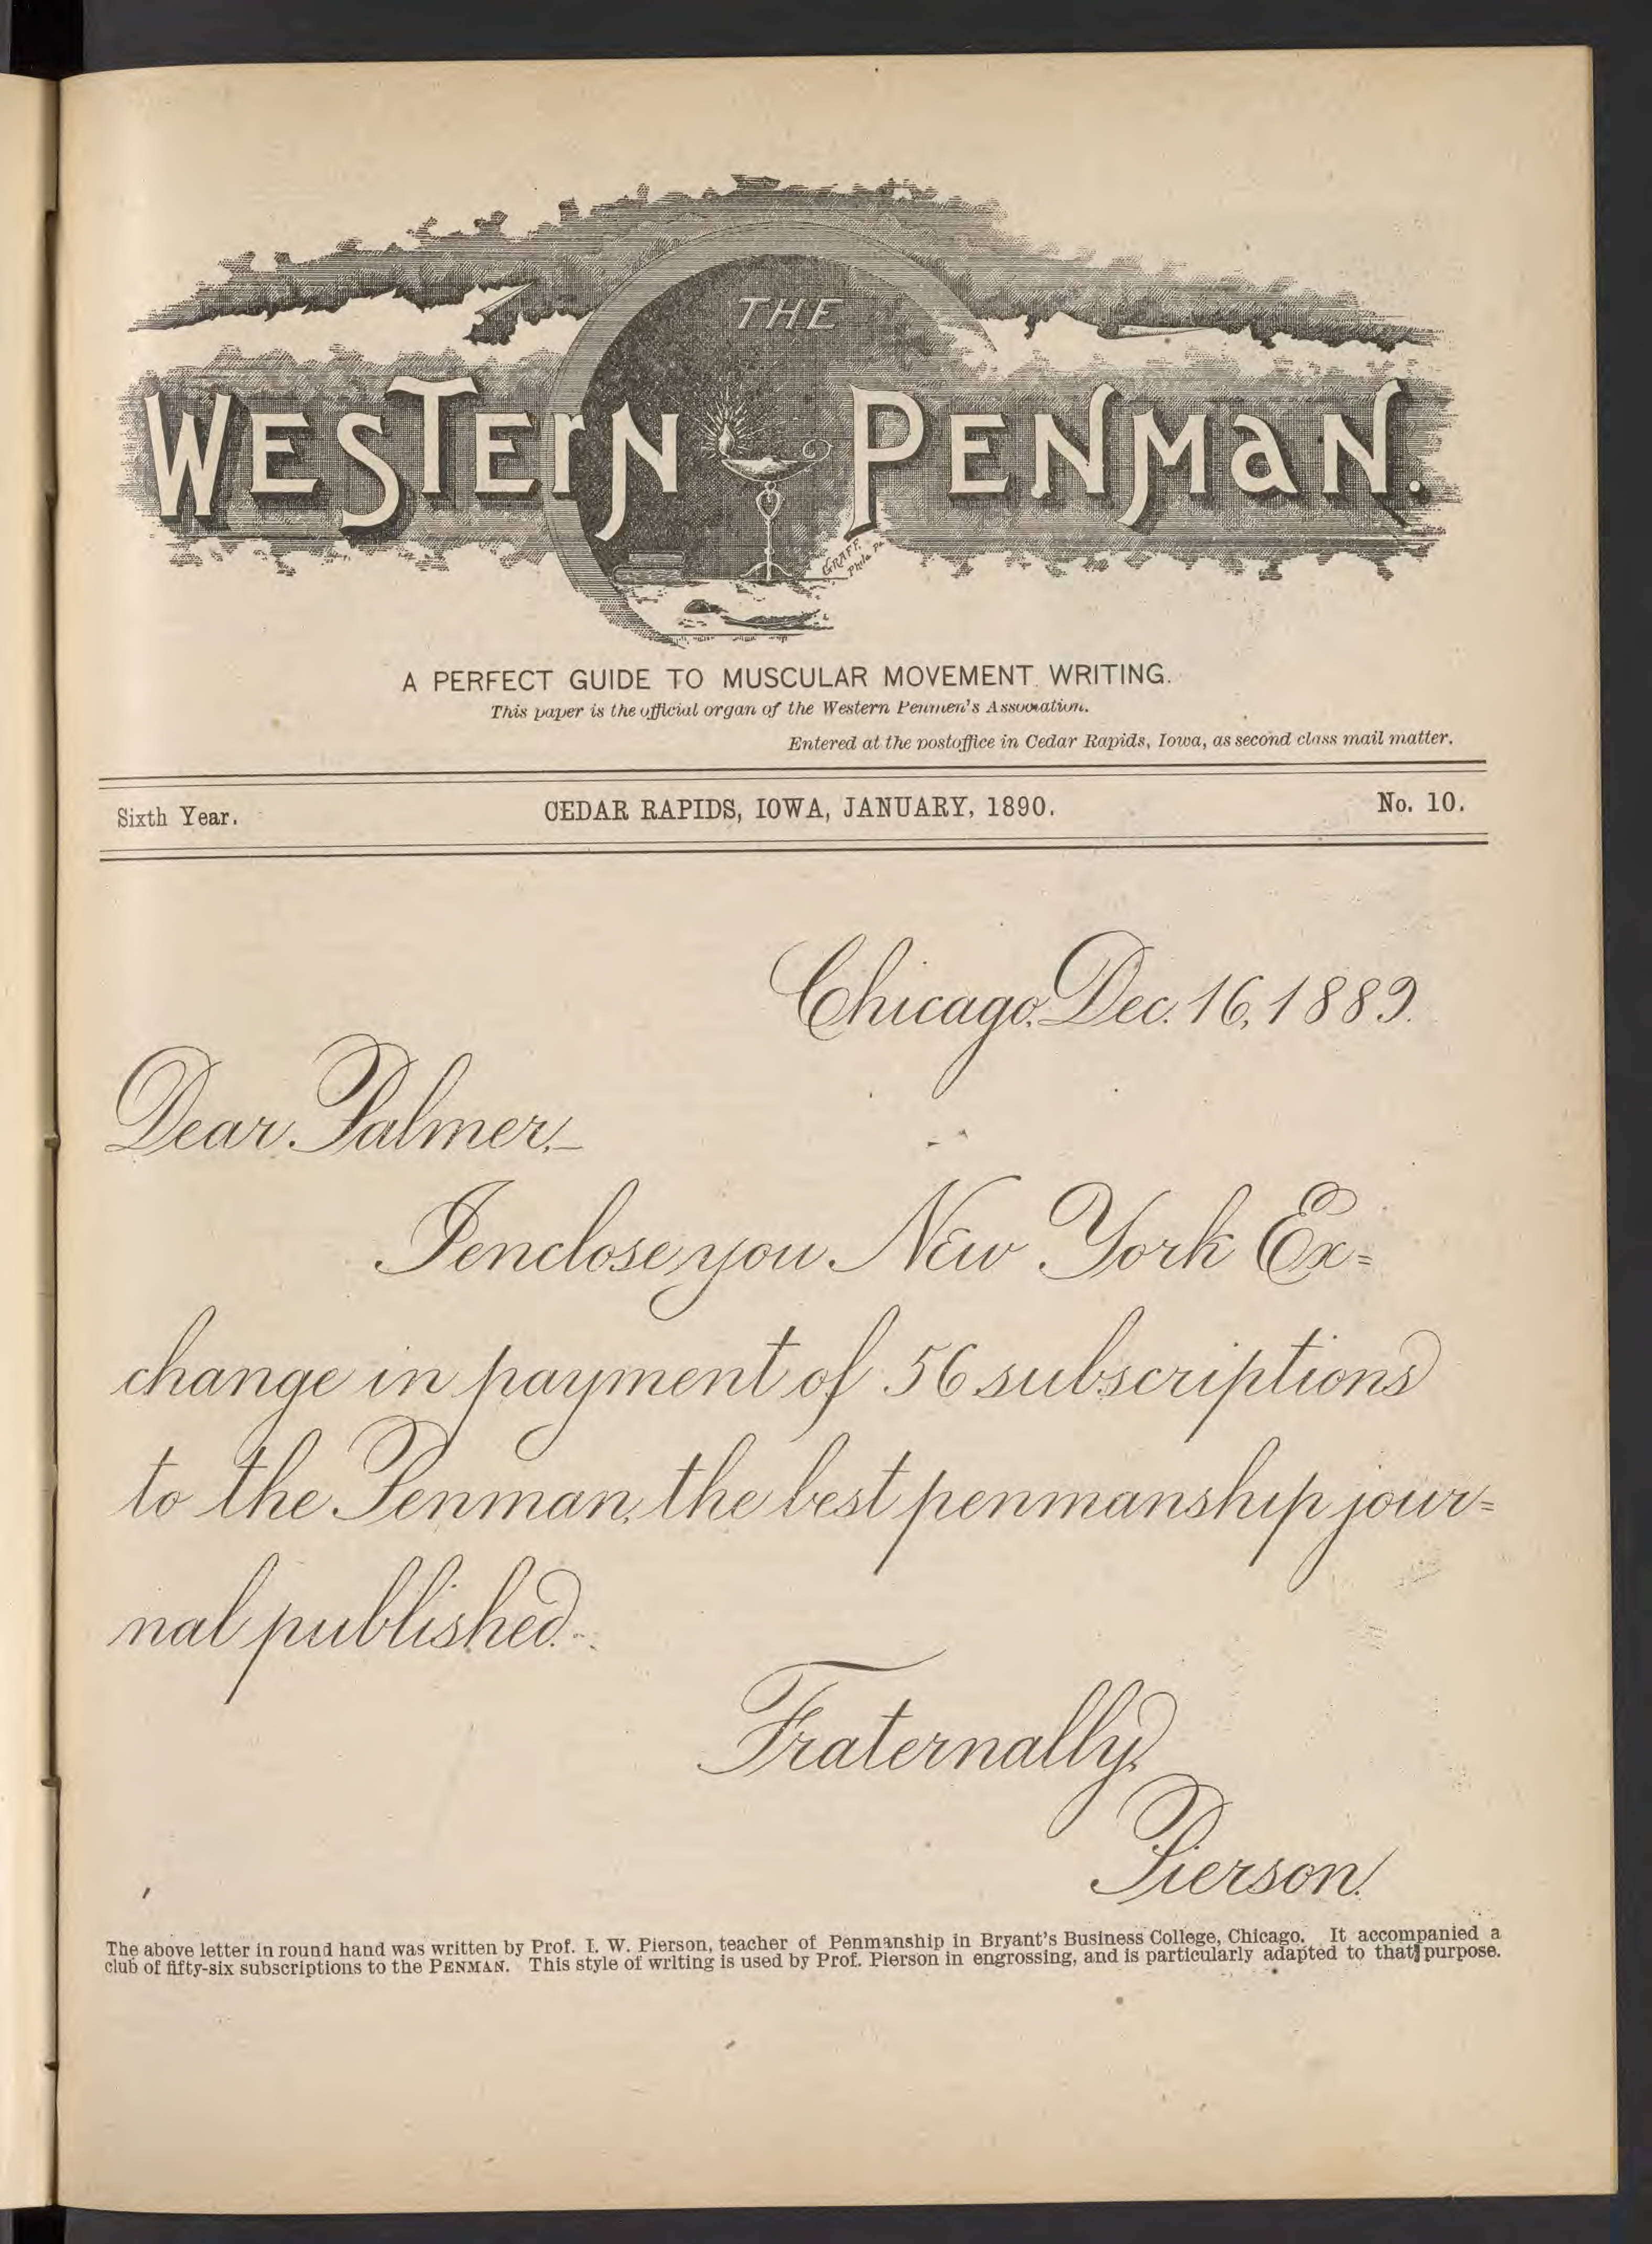 THE
WESTErN PENMaN.
GRAFF.
Phila Pa
A PERFECT GUIDE TO MUSCULAR MOVEMENT WRITING.
This paper is the official organ of the Western Penmen's Association.
Entered at the postoffice in Cedar Rapids, Iowa, as second class mail matter.
Sixth Year. CEDAR RAPIDS, IOWA, JANUARY, 1890. No. 10.
Chicago, Dec. 16, 1889.
Dear Palmer,—
I enclose you New York Ex=
change in payment of 56 subscriptions
to the Penman, the best penmanship jour=
nal published.
Fraternally,
Pierson.
The above letter in round hand was written by Prof. I. W. Pierson, teacher of Penmanship in Bryant's Business College, Chicago. It accompanied a
club of fifty-six subscriptions to the PENMAN. This style of writing is used by Prof. Pierson in engrossing, and is particularly adapted to that purpose.